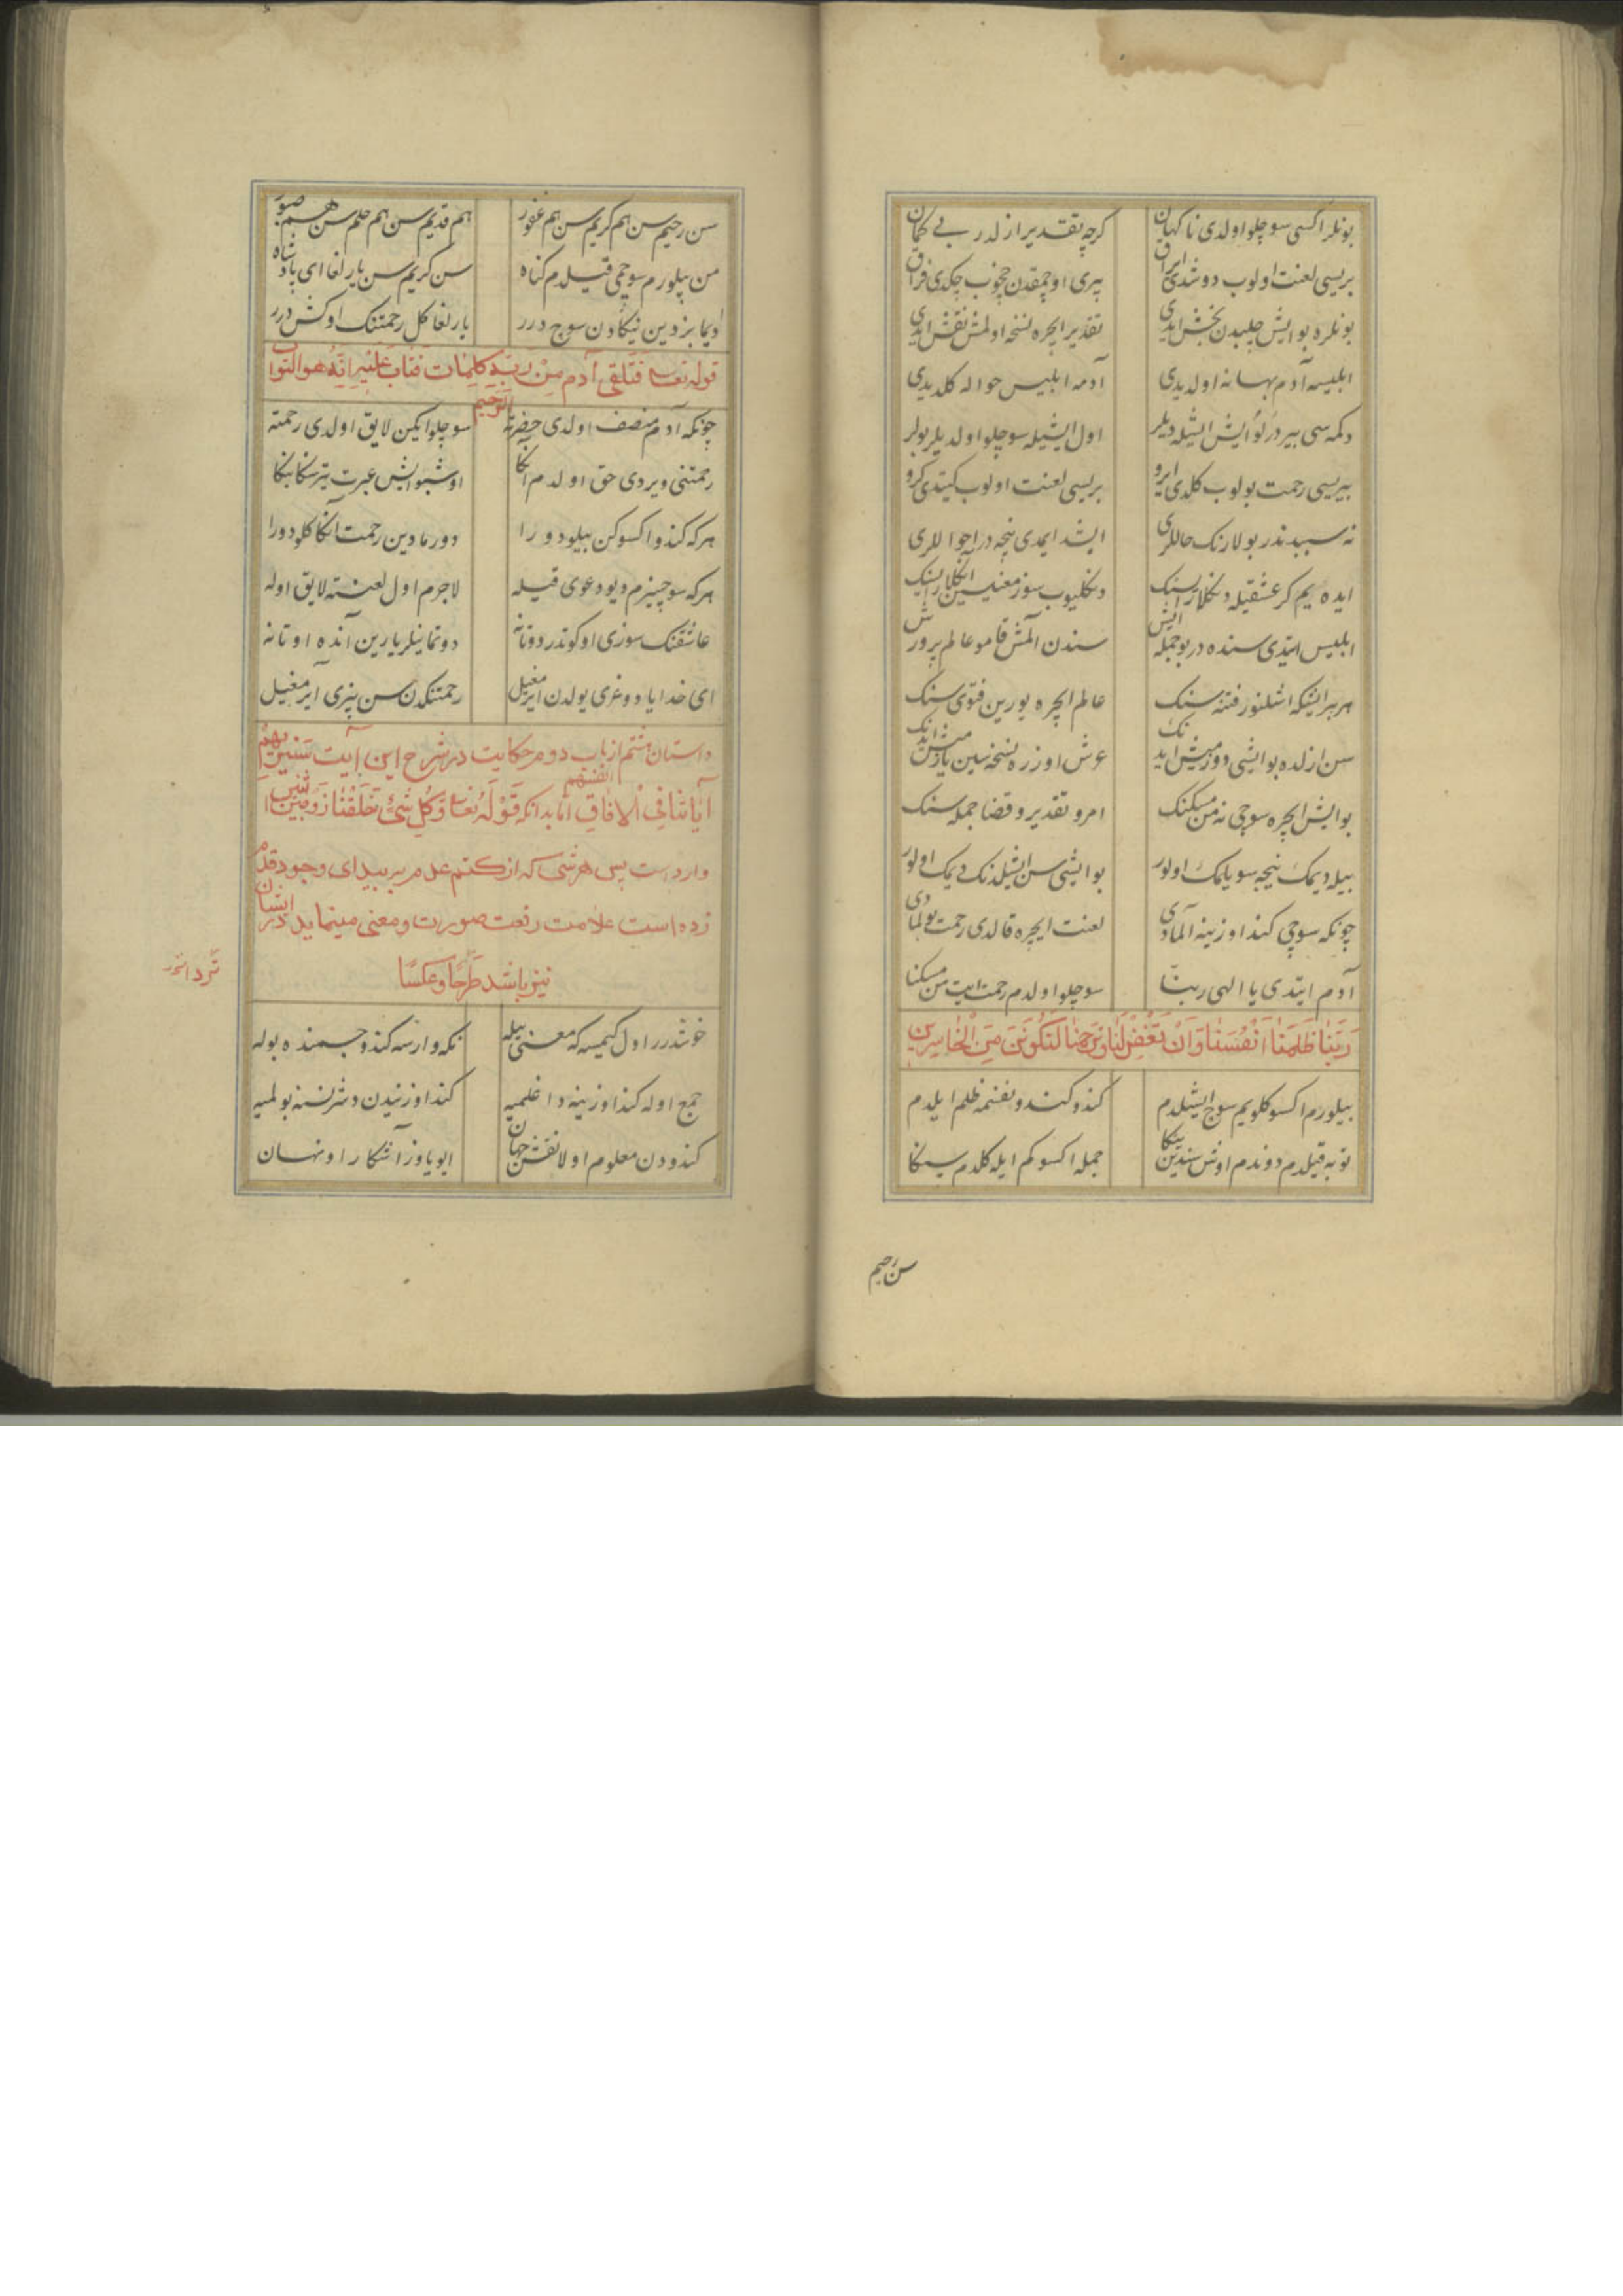 بونلر اکسی سوچلو اولدی ناکهان کرچه تقدیر ازلدر بی کمان
بریسی لعنت اولوب دوشدی ایراق بیری اوچمقدن چخوب چکدی فراق
بونلره بو ایش چلبدن بخش ایدی تقدیر ایچره نسخه اولمش نقش ایدی
ابلیسه آدم بهانه اولدیدی آدمه ابلیس حواله کلدیدی
دکمه سی بیر درلو ایش ایشله دیلر اول ایشیله سوچلو اولدیلر بولر
بیریسی رحمت بولوب کلدی ایرو بریسی لعنت اولوب کیتدی کرو
نه سببدندر بولارنک حاللری ایشد ایمدی نیجه در احواللری
ایده ییم کر عشقیله دکلارسنک دکلیوب سوز معنیسین اکلارسنک
ابلیس ایتدی سنده در بو جمله ایش سندن آلمش قامو عالم پرورش
هر بر ایشکه اشلنور فتنه سنک عالم ایچره یورین فتوی سنک
سن ازلده بو ایشی دوزمیش ایدنک عرش اوزره نسخه سین یازمش ایدنک
بو ایش ایچره سوچی نه من مسکنک امر و تقدیر و قضا جمله سنک
بیله دیمک نیجه سویلمک اولور بو ایشی سن ایشلدنک دیمک اولور
چونکه سوچی کند اوزینه آلمادی لعنت ایچره قالدی رحمت بولمادی
آدم ایتدی یا الهی ربنا سوچلو اولدم رحمت ایت من مسکنا
رَبَّنَا ظَلَمْنَا اَنْفُسَنَا وَاِنْ لَمْ تَغْفِرْ لَنَا وَتَرْحَمْنَا لَنَكُونَنَّ مِنَ الْخَاسِرِينَ
بیلورم اکسوکلویم سوج ایشلدم کندو کندو نفسمه ظلم ایلدم
توبه قیلدم دوندم اوش سندین ینکا جمله اکسوکم ایله کلدم سنکا
سن رحیم
سن رحیم سن هم کریم سن هم غفور هم قدیم سن هم حلیم سن هم صبور
من بیلورم سوچمی قیلدم کناه سن کریم سن یارلغا ای پادشاه
دیما بزدین نیکادن سوج درر یارلغا کل رحمتنک اوکش درر
قوله تعالی فَتَلَقَّى آدم مِنْ رَبِّهِ كَلِمَات فَتَابَ عَلَيْهِ اِنَّهُ هو التواب الرحیم
چونکه آدم منصف اولدی حضرته سوچلو ایکن لایق اولدی رحمته
رحمتنی ویردی حق اولدم انکا اوشبو ایش عبرت یترسکا بنکا
هرکه کندو اکسوکن بیلو دورا دورمادین رحمت انکا کلو دورا
هرکه سوچسیزم دیو دعوی قیله لاجرم اول لعنته لایق اوله
عاشقنک سوزی اوکوتدر دوتانه دوتماینلر یارین آنده اوتانه
ای خدایا دوغری یولدن ایرمغیل رحمتنکدن سن بزی ایرمغیل
داستان هشتم از باب دوم حکایت در شرح این آیت سَنُرِيهِمْ
آيَاتِنَا فِي الْآفَاقِ وفی انفسهم اما بدانکه قَوْلُهُ تَعَالی وَكُلِّ شَيْءٍ خَلَقْنَا زَوْجَيْنِ اثنین
وارد است پس هر شی که از کتم عدم بر بیدای وجود قدم
زده است علامت رفعت صورت و معنی مینماید در انسان
نیز باشد طرحًا و عکسًا
خوشدرر اول کیمسه که معنی بیله نکه وارسه کندو جسمنده بوله
جمع اوله کند اوزینه داغلمیه کند اوزنیدن دشره نسنه بولمیه
کندودن معلوم اولا نقش جهان ایو یاوز آشکارا و نهان